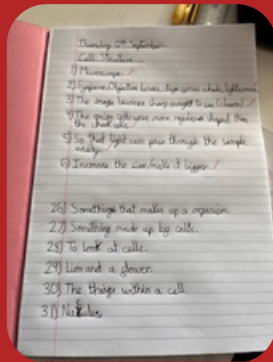 Thursday September
Cell Structure
1) Microscope
2) Eyepiece, Objective lenses, stage,
3) The image becomes sharp enough to see (clearer)
4) The onion cells were more regularly shaped than
the cheek cells
5) So that light can pass through the sample
easily.
6) Increase the size/make it bigger
26) Something that makes up a organism.
27) Something made up by cells.
28) To look at cells.
29) Lion and a flower.
30) The things within a cell
31)